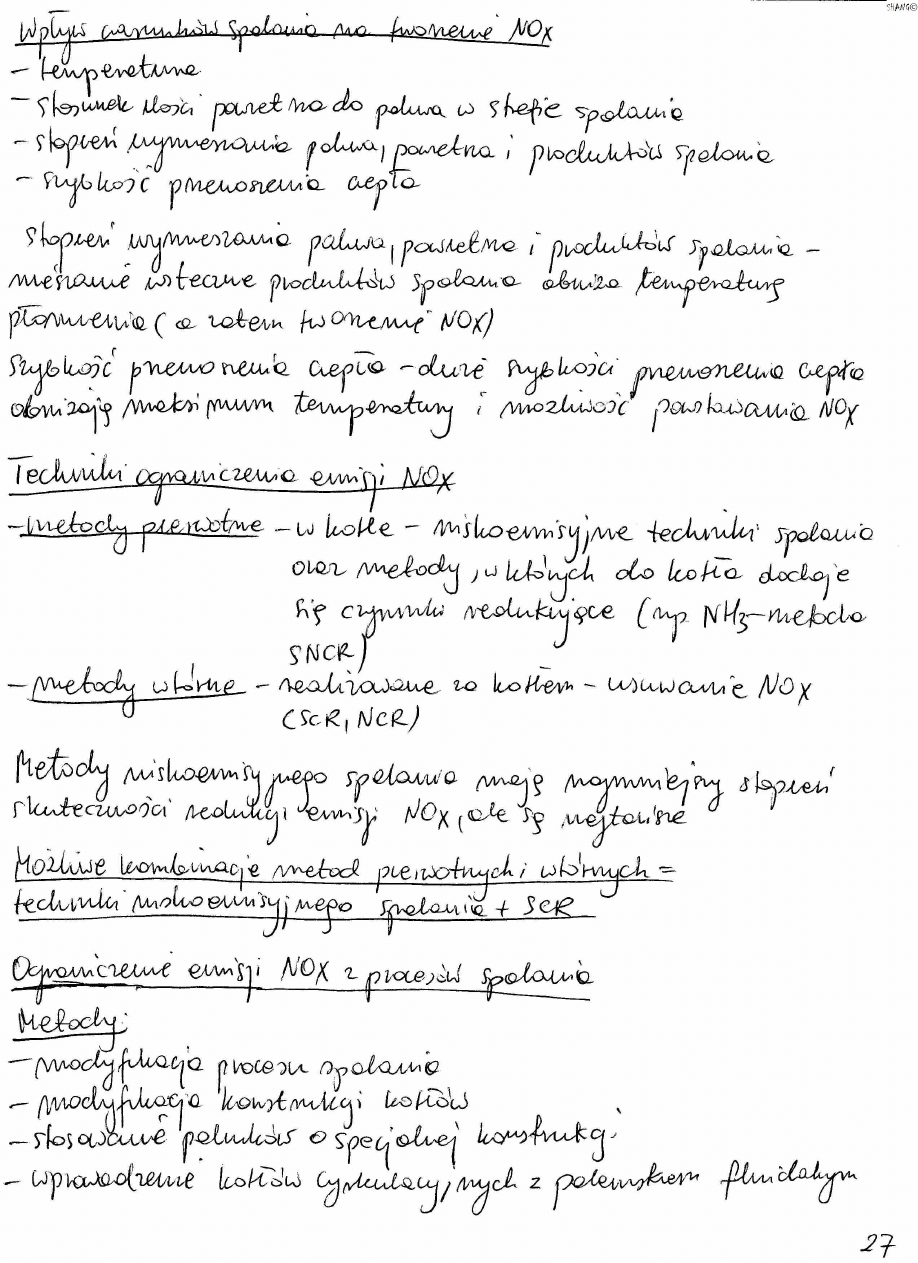 SHANG©
Wpływ warunków spalania na tworzenie NOx
- temperatura
- stosunek ilości powietrza do paliwa w strefie spalania
- stopień wymieszania paliwa, powietrza i produktów spalania
- szybkość przenoszenia ciepła
Stopień wymieszania paliwa, powietrza i produktów spalania -
mieszanie wsteczne produktów spalania obniża temperaturę
płomienia (a zatem tworzenie NOx)
Szybkość przenoszenia ciepła - duże szybkości przenoszenia ciepła
obniżają maksimum temperatury i możliwość powstawania NOx
Techniki ograniczenia emisji NOx
- metody pierwotne - w kotle - niskoemisyjne techniki spalania
oraz metody, w których do kotła dodaje
się czynniki redukujące (np. NH3 - metoda
SNCR)
- metody wtórne - realizowane za kotłem - usuwanie NOx
(SCR, NCR)
Metody niskoemisyjnego spalania mają najmniejszy stopień
skuteczności redukcji emisji NOx, ale są najtańsze
Możliwe kombinacje metod pierwotnych i wtórnych =
techniki niskoemisyjnego spalania + SCR
Ograniczenie emisji NOx z procesów spalania
Metody:
- modyfikacja procesu spalania
- modyfikacja konstrukcji kotłów
- stosowanie palników o specjalnej konstrukcji
- wprowadzenie kotłów cyrkulacyjnych z paleniskiem fluidalnym
27